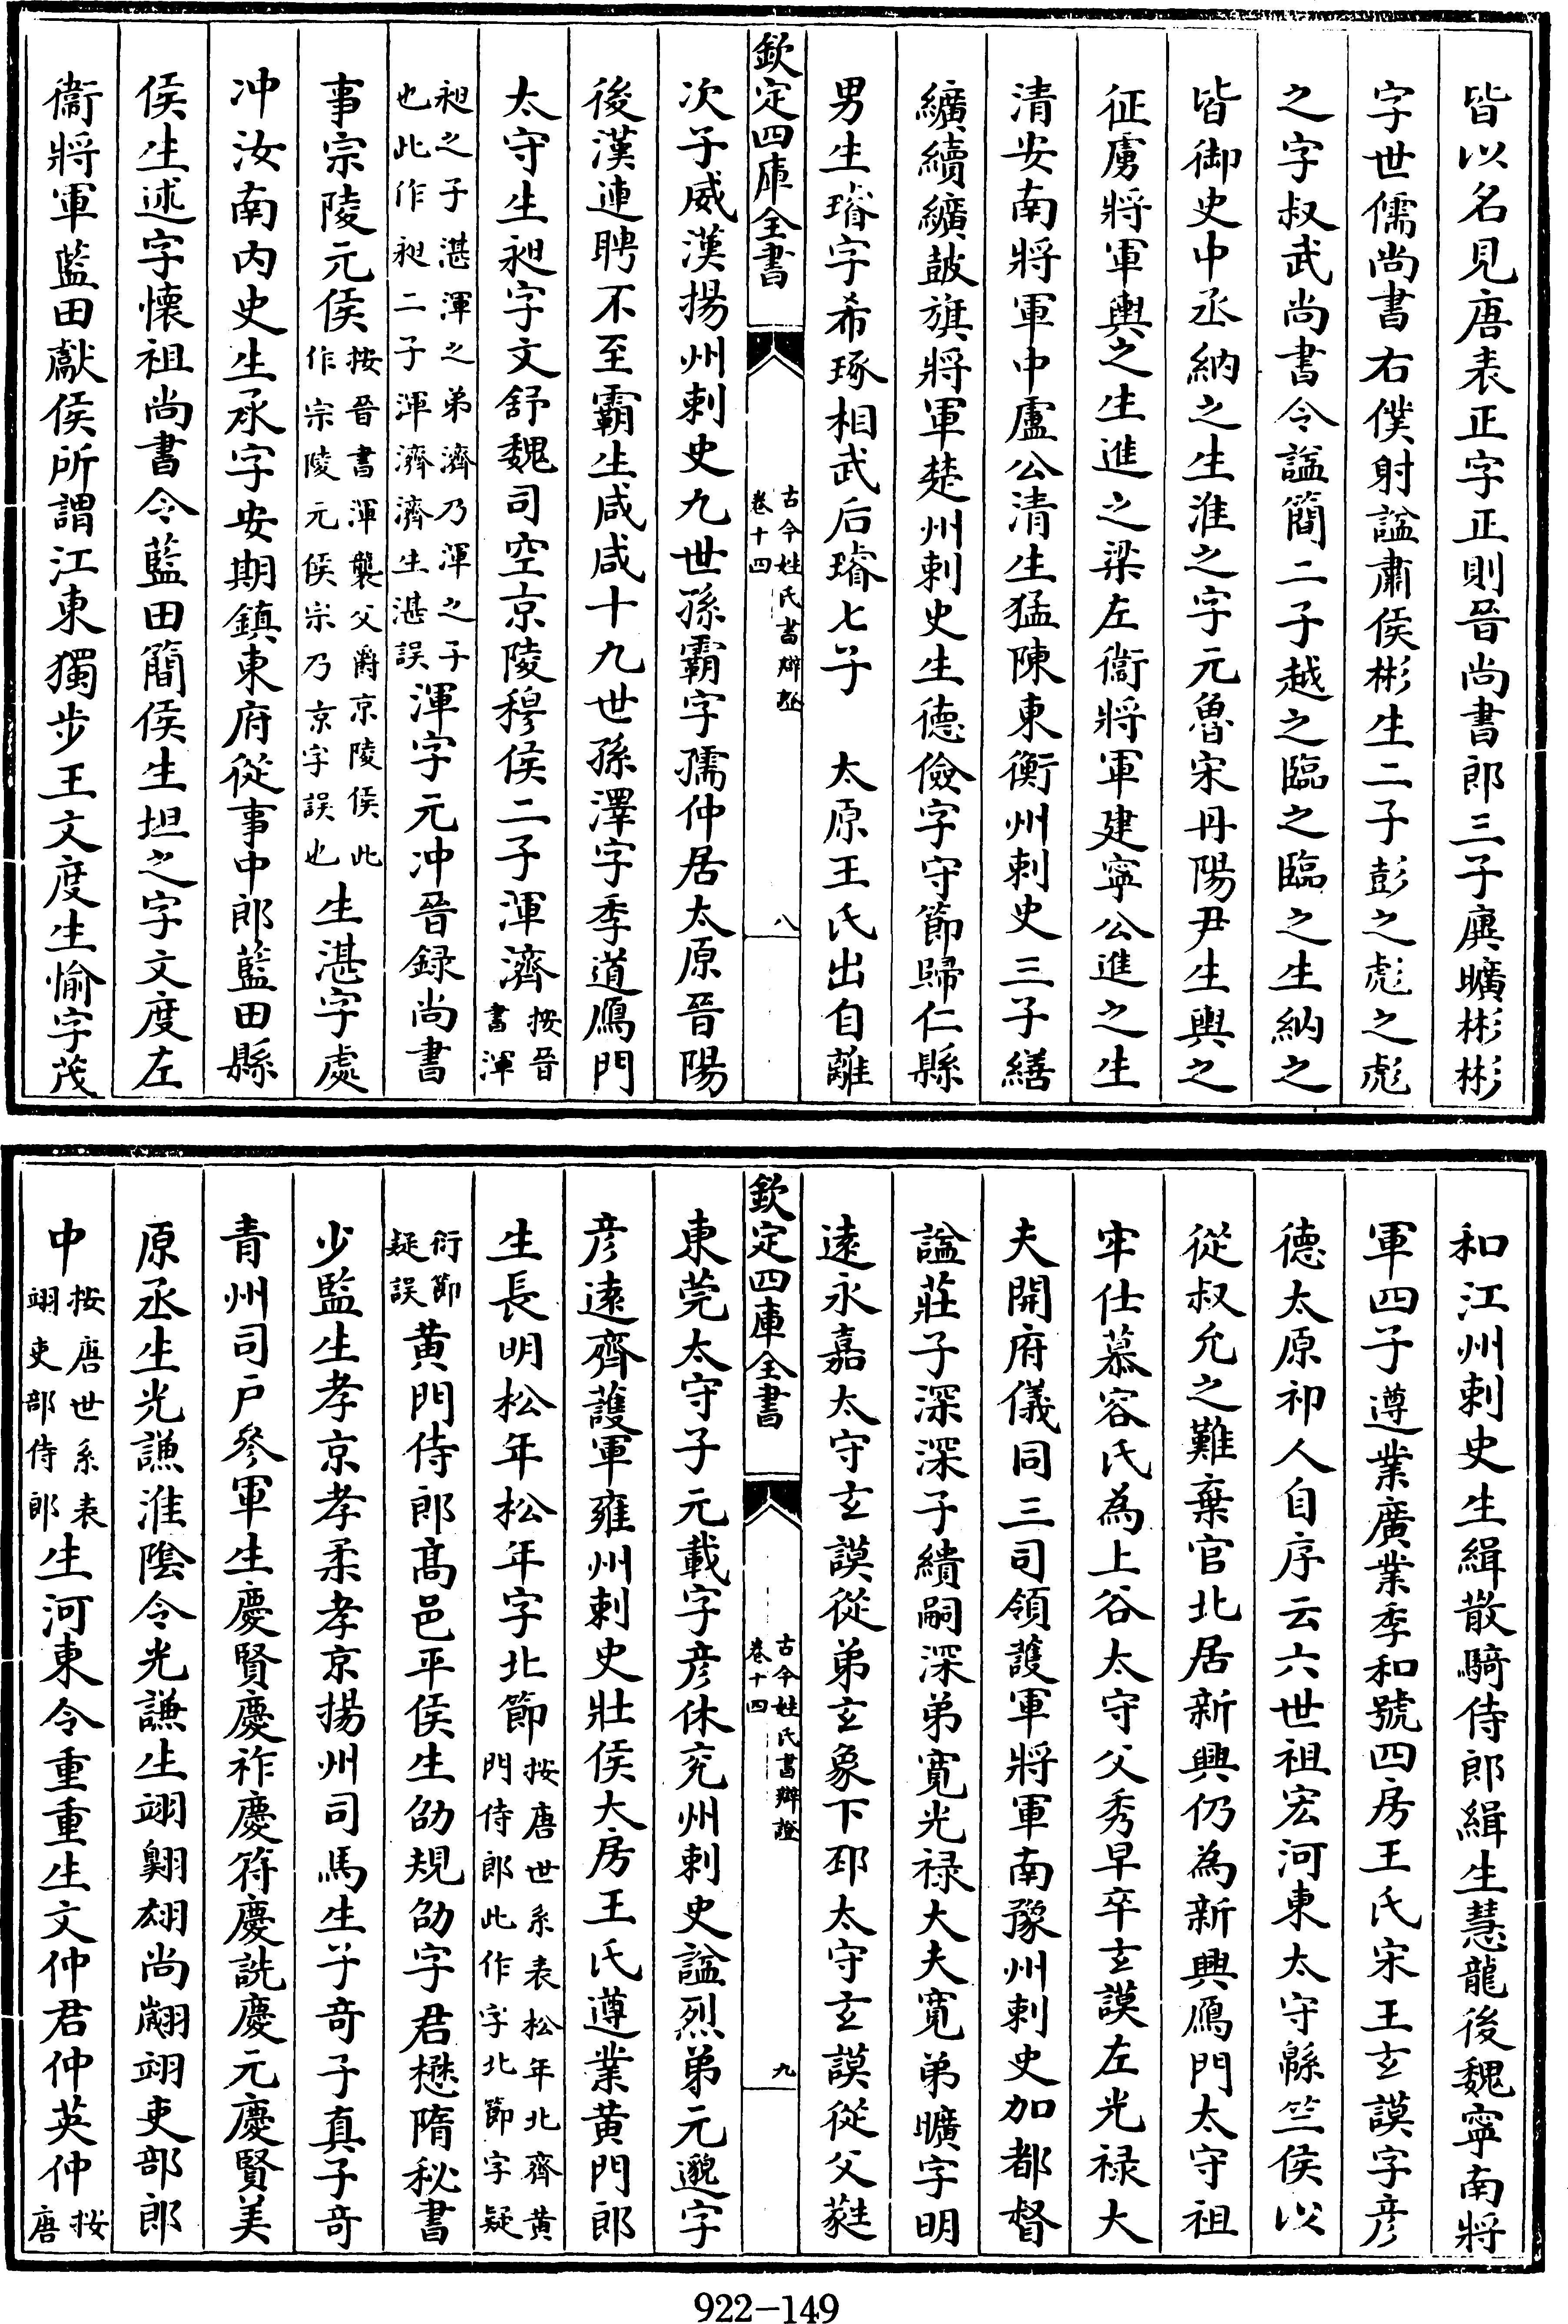 皆以名見唐表正字正則晉尚書郎三子廙曠彬彬
字世儒尚書右僕射諡肅侯彬生二子彭之彪之彪
之字叔武尚書令諡簡二子越之臨之臨之生納之
皆御史中丞納之生淮之字元魯宋丹陽尹生輿之
征虜將軍輿之生進之梁左衛將軍建寧公進之生
清安南將軍中盧公清生猛陳東衡州刺史三子繕
纊續纊鼓旗將軍楚州刺史生德儉字守節歸仁縣
男生璿字希琢相武后璿七子 太原王氏出自離
欽定四庫全書 古今姓氏書辯證 卷十四 八
次子威漢揚州刺史九世孫霸字孺仲居太原晉陽
後漢連聘不至霸生咸咸十九世孫澤字季道鴈門
太守生昶字文舒魏司空京陵穆侯二子渾濟按晉書渾
昶之子湛渾之弟濟乃渾之子也此作昶二子渾濟濟生湛誤渾字元冲晉録尚書
事宗陵元侯按晉書渾襲父爵京陵侯此作宗陵元侯宗乃京字誤也生湛字處
冲汝南内史生承字安期鎮東府從事中郎藍田縣
侯生述字懷祖尚書令藍田簡侯生坦之字文度左
衞將軍藍田獻侯所謂江東獨步王文度生愉字茂
和江州刺史生緝散騎侍郎緝生慧龍後魏寧南將
軍四子遵業廣業季和號四房王氏宋王玄謨字彦
德太原祁人自序云六世祖宏河東太守緜竺侯以
從叔允之難棄官北居新興仍為新興鴈門太守祖
牢仕慕容氏為上谷太守父秀早卒玄謨左光禄大
夫開府儀同三司領護軍將軍南豫州刺史加都督
諡莊子深深子繢嗣深弟寛光禄大夫寛弟曠字明
遠永嘉太守玄謨從弟玄象下邳太守玄謨從父蕤
欽定四庫全書 古今姓氏書辯證 卷十四 九
東莞太守子元載字彦休兖州刺史諡烈弟元邈字
彦遠齊護軍雍州刺史壯侯大房王氏遵業黄門郎
生長明松年松年字北節按唐世系表松年北齊黄門侍郎此作字北節字疑
衍節疑誤黄門侍郎髙邑平侯生劭規劭字君懋隋秘書
少監生孝京孝柔孝京揚州司馬生子奇子真子奇
青州司戶參軍生慶賢慶祚慶符慶詵慶元慶賢美
原丞生光謙淮陰令光謙生翊翺翃尚翽翊吏部郎
中按唐世系表翊吏部侍郎生河東令重重生文仲君仲英仲按唐
922-149